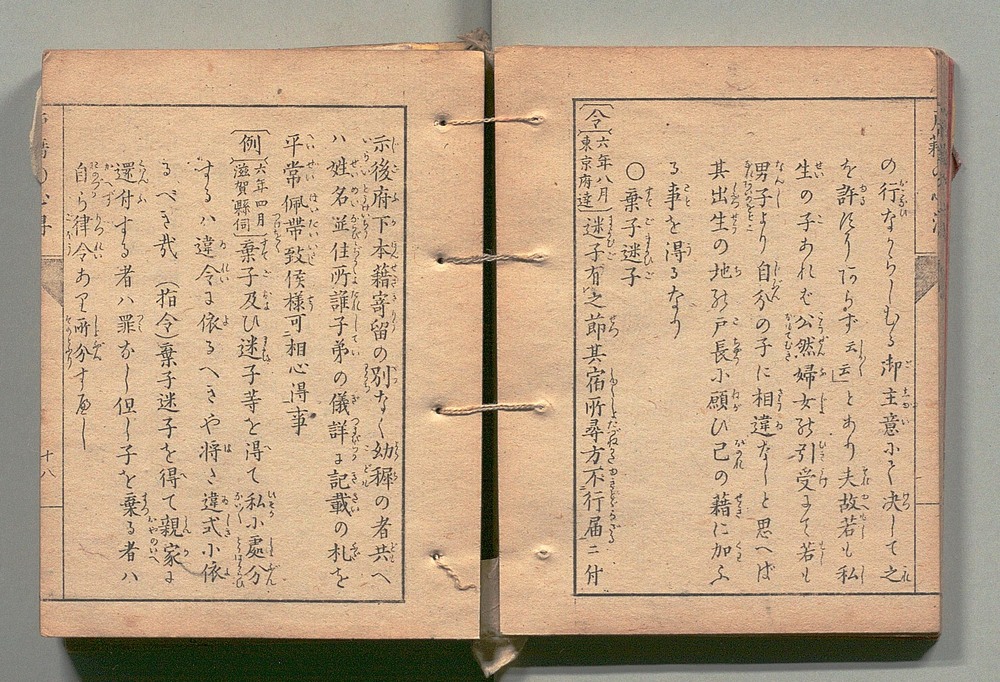 の行なからしむる御主意にて決して之
を許にりあらず云云」とあり夫故若も私
生の子あれば公然婦女の引受にて若も
男子より自分の子に相違なしと思へば
其出生の地の戸長に願ひ己の籍に加ふ
る事を得るなり
〇棄子迷子
〔令〕六年八月東京府達 迷子有之節其宿所尋方不行届ニ付
示後府下本籍寄留の別なく幼稺の者共へ
ハ姓名並住所誰子弟の儀詳に記載の札を
平常佩帯致候様可相心得事
〔例〕六年四月滋賀縣伺 棄子及ひ迷子等を得て私に處分
するハ違令に依るへきや将さ違式に依
るべき哉 (指令)棄子迷子を得て親家に
還付する者ハ罪なし但し子を棄る者ハ
自ら律令あり所分すべし
十八